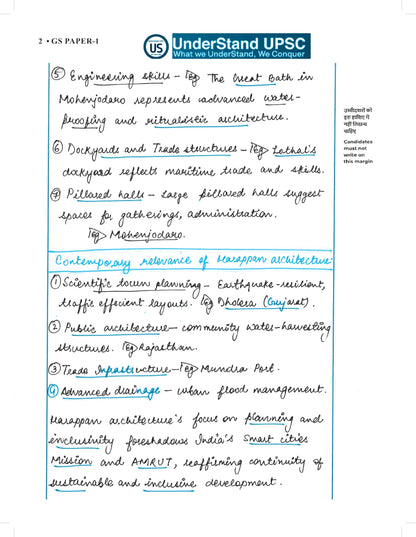 2 • GS PAPER-I
US
UnderStand UPSC
What we UnderStand, We Conquer
⑤ Engineering skills - Eg The Great Bath in
Mohenjodaro represents advanced water-
proofing and ritualistic architecture.
⑥ Dockyards and Trade structures - Eg Lothal's
dockyard reflects maritime trade and skills.
⑦ Pillared halls - Large pillared halls suggest
spaces for gatherings, administration.
Eg Mohenjodaro.
Contemporary relevance of Harappan architecture:
① Scientific town planning - Earthquake-resilient,
traffic effecient layouts. Eg Dholera (Gujarat).
② Public architecture - community water-harvesting
structures. Eg Rajasthan.
③ Trade Infrastructure - Eg Mundra Port.
④ Advanced drainage - urban flood management.
Harappan architecture's focus on planning and
inclusivity foreshadows India's Smart cities
Mission and AMRUT, reaffirming continuity of
sustainable and inclusive development.
उम्मीदवारों को
इस हाशिए में
नहीं लिखना
चाहिए
Candidates
must not
write on
this margin